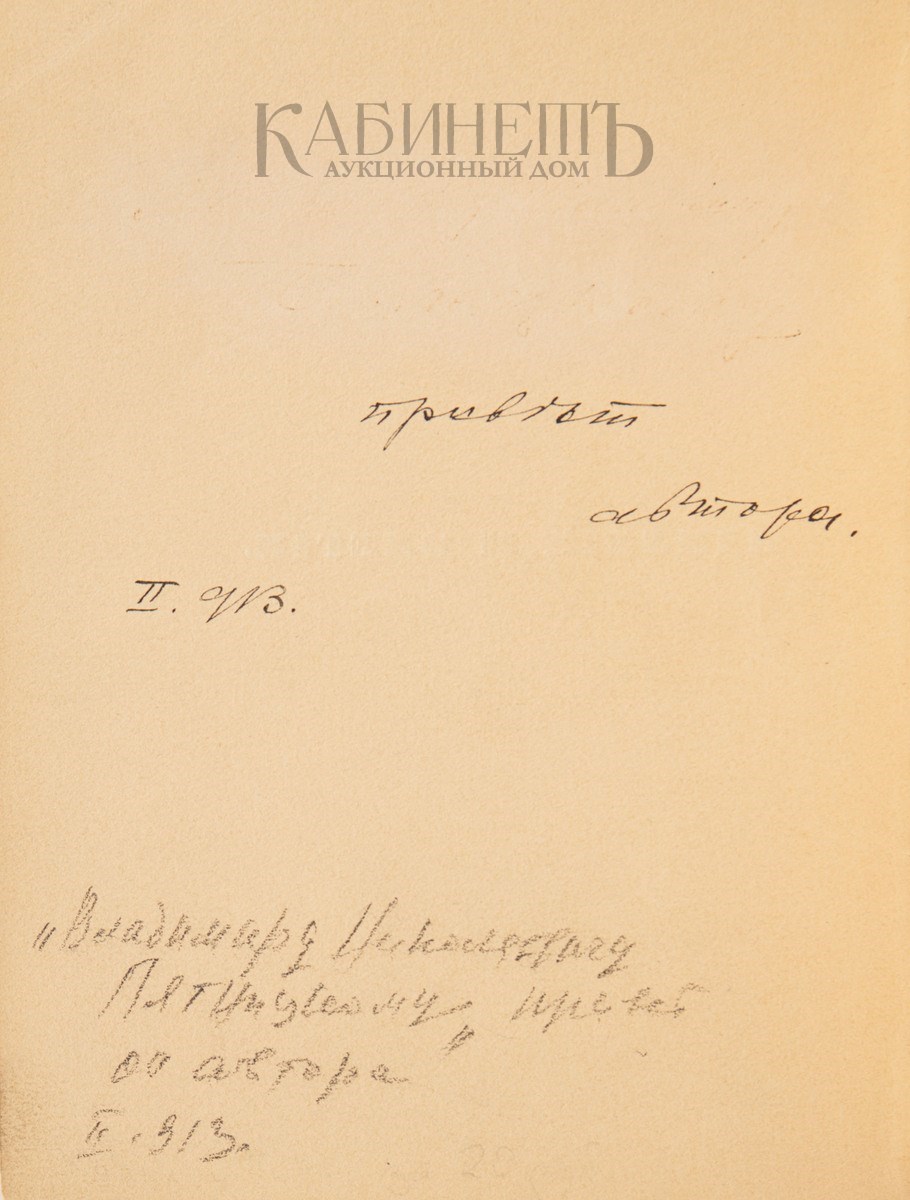 КАБИНЕТЪ
АУКЦИОННЫЙ ДОМ
привѣт
автора.
II. 913.
"Владимиру Николаевичу
Пятницкому" привет
от автора"
II. 913.